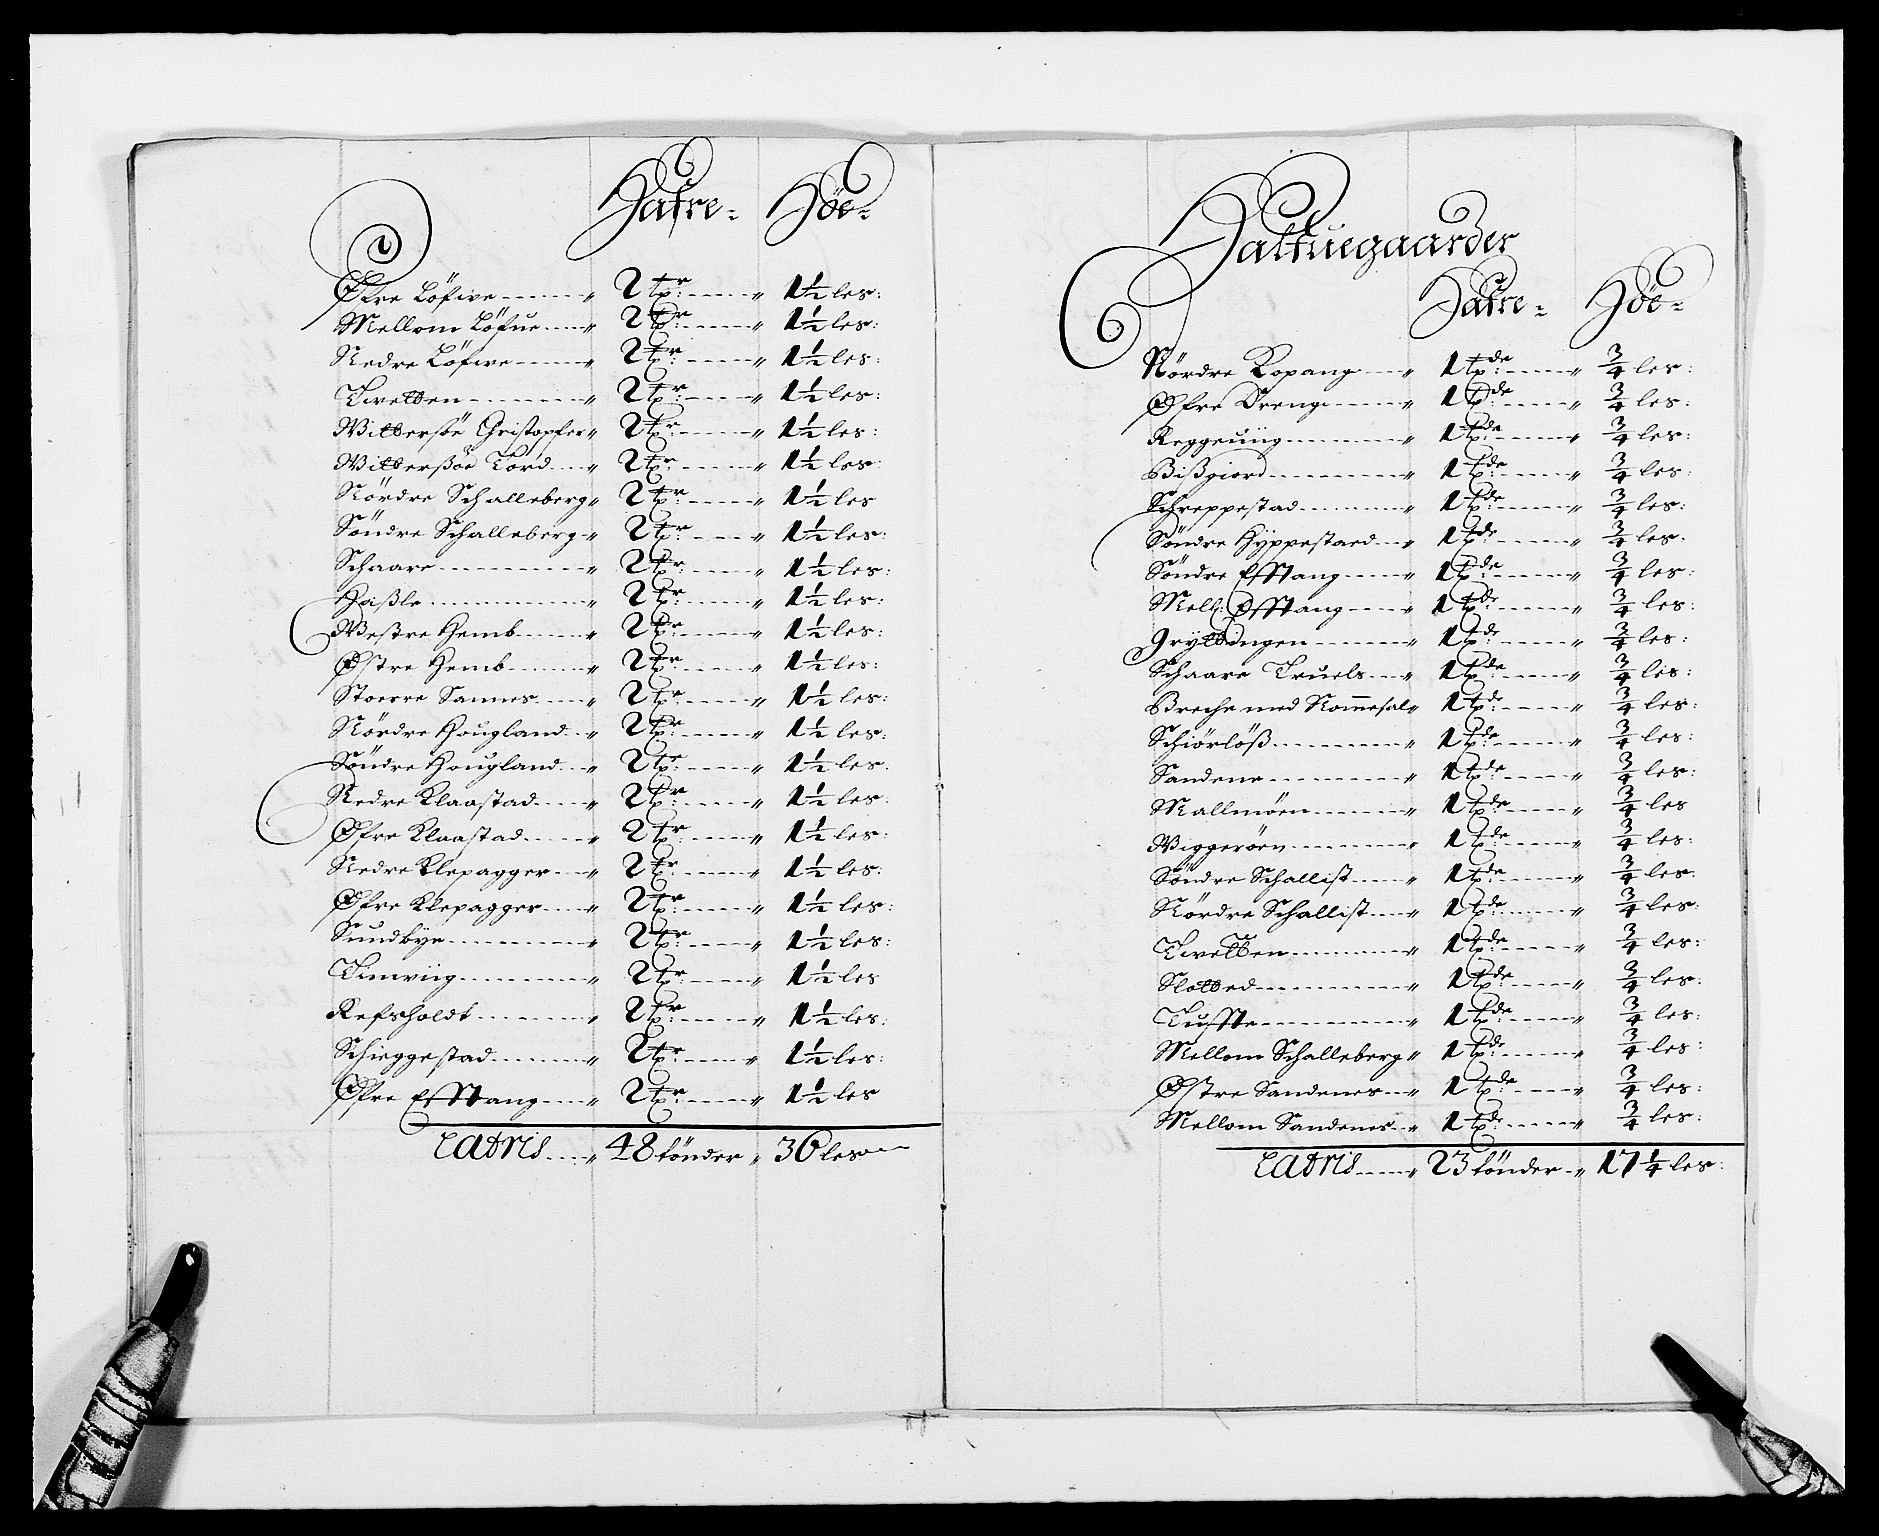 Hafre- Höe-
Øfre Löfwe 2 tr: 1½ les:
Mellom Löfue 2 tr: 1½ les:
Nedre Löfwe 2 tr: 1½ les:
Twetten 2 tr: 1½ les:
Wittersöe Christopfer 2 tr: 1½ les:
Witterßöe Tord 2 tr: 1½ les
Nördre Schalleberg 2 tr: 1½ les
Söndre Schalleberg 2 tr: 1½ les:
Schaare 2 tr: 1½ les:
Haßle 2 tr: 1½ les:
Westre Hemb 2 tr: 1½ les:
Østre Hemb 2 tr: 1½ les:
Stoerre Sannes 2 tr: 1½ les:
Nördre Hougland 2 tr: 1½ les:
Söndre Hougland 2 tr: 1½ les:
Nedre Klaastad 2 tr: 1½ les:
Øfre Klaastad 2 tr: 1½ les:
Nedre Klepagger 2 tr: 1½ les:
Øfre Klepagger 2 tr: 1½ les:
Sundbye 2 tr: 1½ les:
Timwiig 2 tr: 1½ les
Refsholdt 2 tr: 1½ les:
Schieggestad 2 tr: 1½ les:
Øfre Efftang 2 tr: 1½ les
Lateris 48 tönder 36 les
Halfuegaarder
Hafre- Höe-
Nördre Kopang 1 tde: ¾ les:
Øfre Oreng 1 tde: ¾ les:
Reggeuiig 1 tde: ¾ les:
Bißgiord 1 tde: ¾ les:
Schreppestad 1 tde: ¾ les:
Söndre Hyppestaed 1 tde: ¾ les:
Söndre Efftang 1 tde: ¾ les:
Mell: Efftang 1 tde: ¾ les:
Gryttingen 1 tde: ¾ les:
Schaare Truels 1 tde: ¾ les:
Breche med Nomesal 1 tde: ¾ les:
Schiörlöß 1 tde: ¾ les:
Sandene 1 tde: ¾ les:
Mallmöen 1 tde: ¾ les
Wiggeröen 1 tde: ¾ les:
Söndre Schallist 1 tde: ¾ les:
Nördre Schallist 1 tde: ¾ les:
Twetten 1 tde: ¾ les:
Slotted 1 tde: ¾ les:
Tuffte 1 tde: ¾ les:
Mellom Schalleberg 1 tde: ¾ les:
Østre Sandenes 1 tde: ¾ les:
Mellom Sandenes 1 tde: ¾ les:
Lateris 23 tönder 17¼ les: